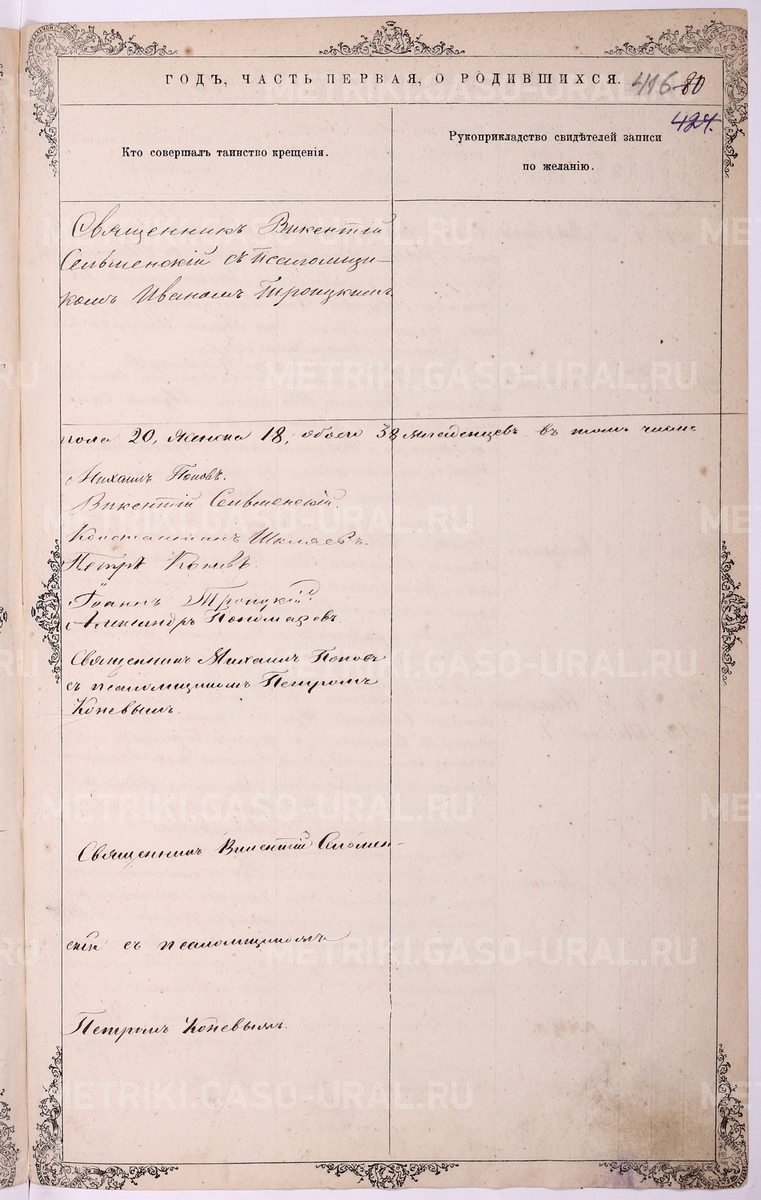 ГОДЪ, ЧАСТЬ ПЕРВАЯ, О РОДИВШИХСЯ. 416 80
424.
Кто совершалъ таинство крещенія.
Рукоприкладство свидѣтелей записи
по желанію.
Священникъ Викентій
съ Псаломщи-
комъ Иваномъ Троицкимъ
пола 20, женска 18, обоего 38 младенцевъ въ томъ числѣ
Михаилъ Поповъ.
Викентій
Константинъ Шкляевъ.
Петръ Коневъ.
Іоаннъ Троицкій
Александръ Пономаревъ.
Священникъ Михаилъ Поповъ
съ псаломщикомъ Петромъ
Коневымъ.
Священникъ Викентій
скій съ псаломщикомъ
Петромъ Коневымъ.
METRIKI.GASO-URAL.RU